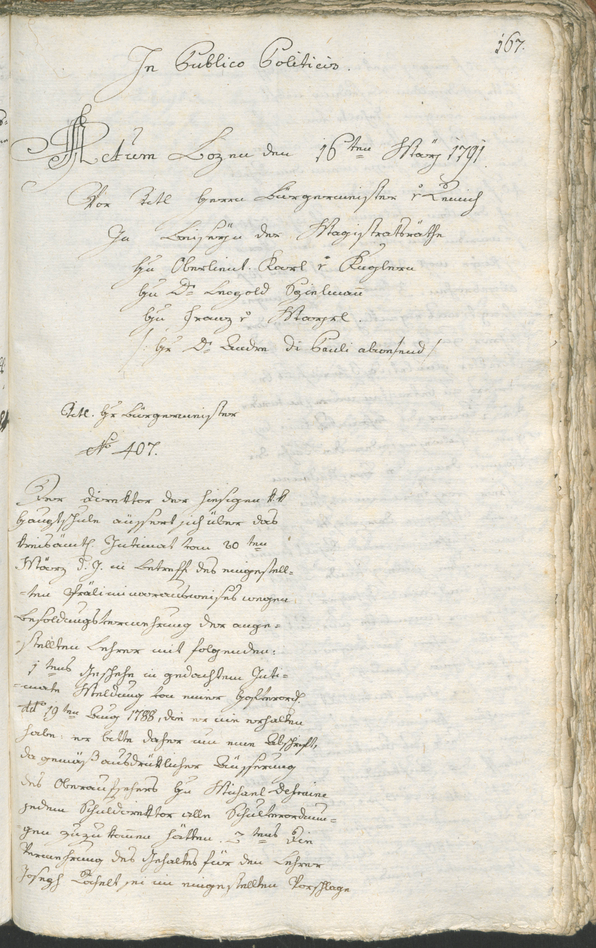 167.
In Publico Politicis.
Actum Bozen den 16ten März 1791
Vor Titl Herrn Bürgermeister v
In Beiseyn der Magistratsräthe
Hn Oberlieut. Karl v Kuglern
Hn Dr Leopold Spielmann
Hn Franz v
/: Hr Dr Andre di Pauli abwesend /
Titl. Hr Bürgermeister
No 407.
Der Direktor der hiesigen kk
Hauptschule äussert sich über das
kreisämtl. Intimat vom 20ten
März d. J. in Betreff des eingestell-
ten Präliminarausweises wegen
Besoldungsvermehrung der ange-
stellten Lehrer mit folgenden:
1tens Geschehe in gedachtem Inti-
mate Meldung von einer Hofverord.
ddo 19ten Aug 1788, die er nie erhalten
habe: er bitte daher um eine Abschrift,
da gemäß ausdrüklicher Äusserung
des Oberaufsehers Hn Michael
jedem Schuldirektor alle Schulverordnun-
gen zuzukommen hätten. 2tens die
Vermehrung des Gehaltes für den Lehrer
Joseph sei im eingestellten Vorschlage